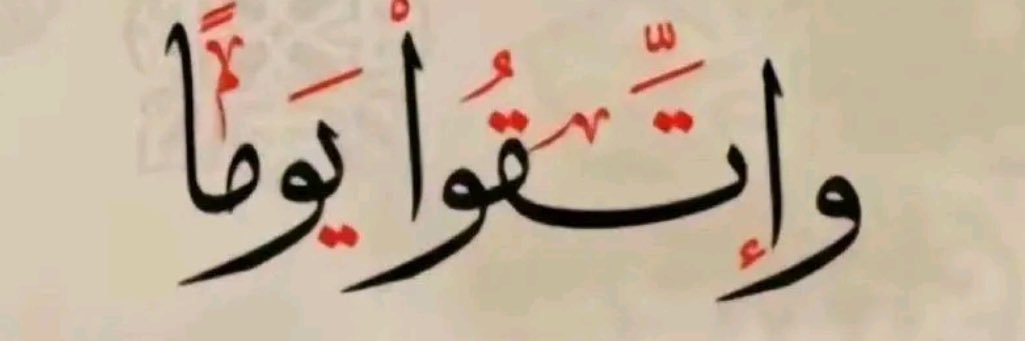 وإتَّقُواْ يَومًا